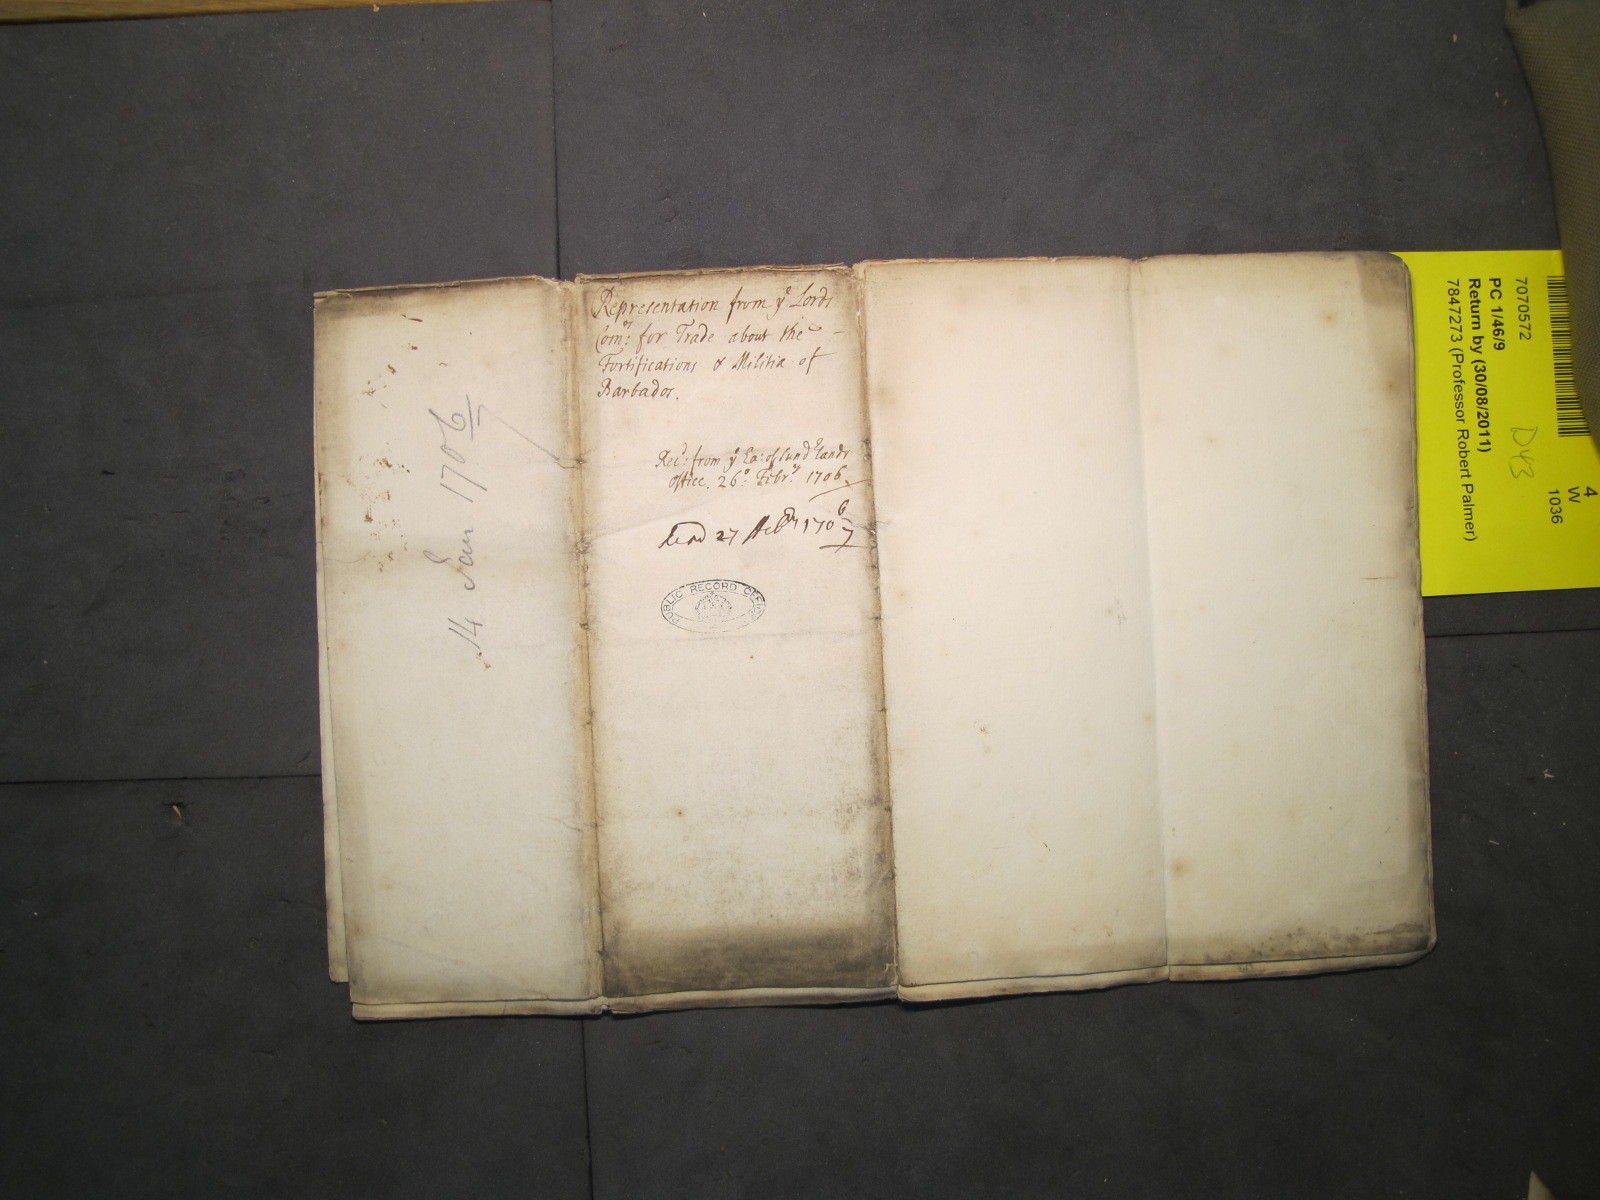 14 Jan 1706/7
Representation from ye Lords
Comrs: for Trade about the
Fortifications & Militia of
Barbados.
Recd: from ye Ea: of Sund'lands
Office. 26o: Febry 1706.
Read 27 Febry 1706/7
PUBLIC RECORD OFFICE
4
W
1036
7070572
PC 1/46/9
Return by (30/08/2011)
7847273 (Professor Robert Palmer)
D43